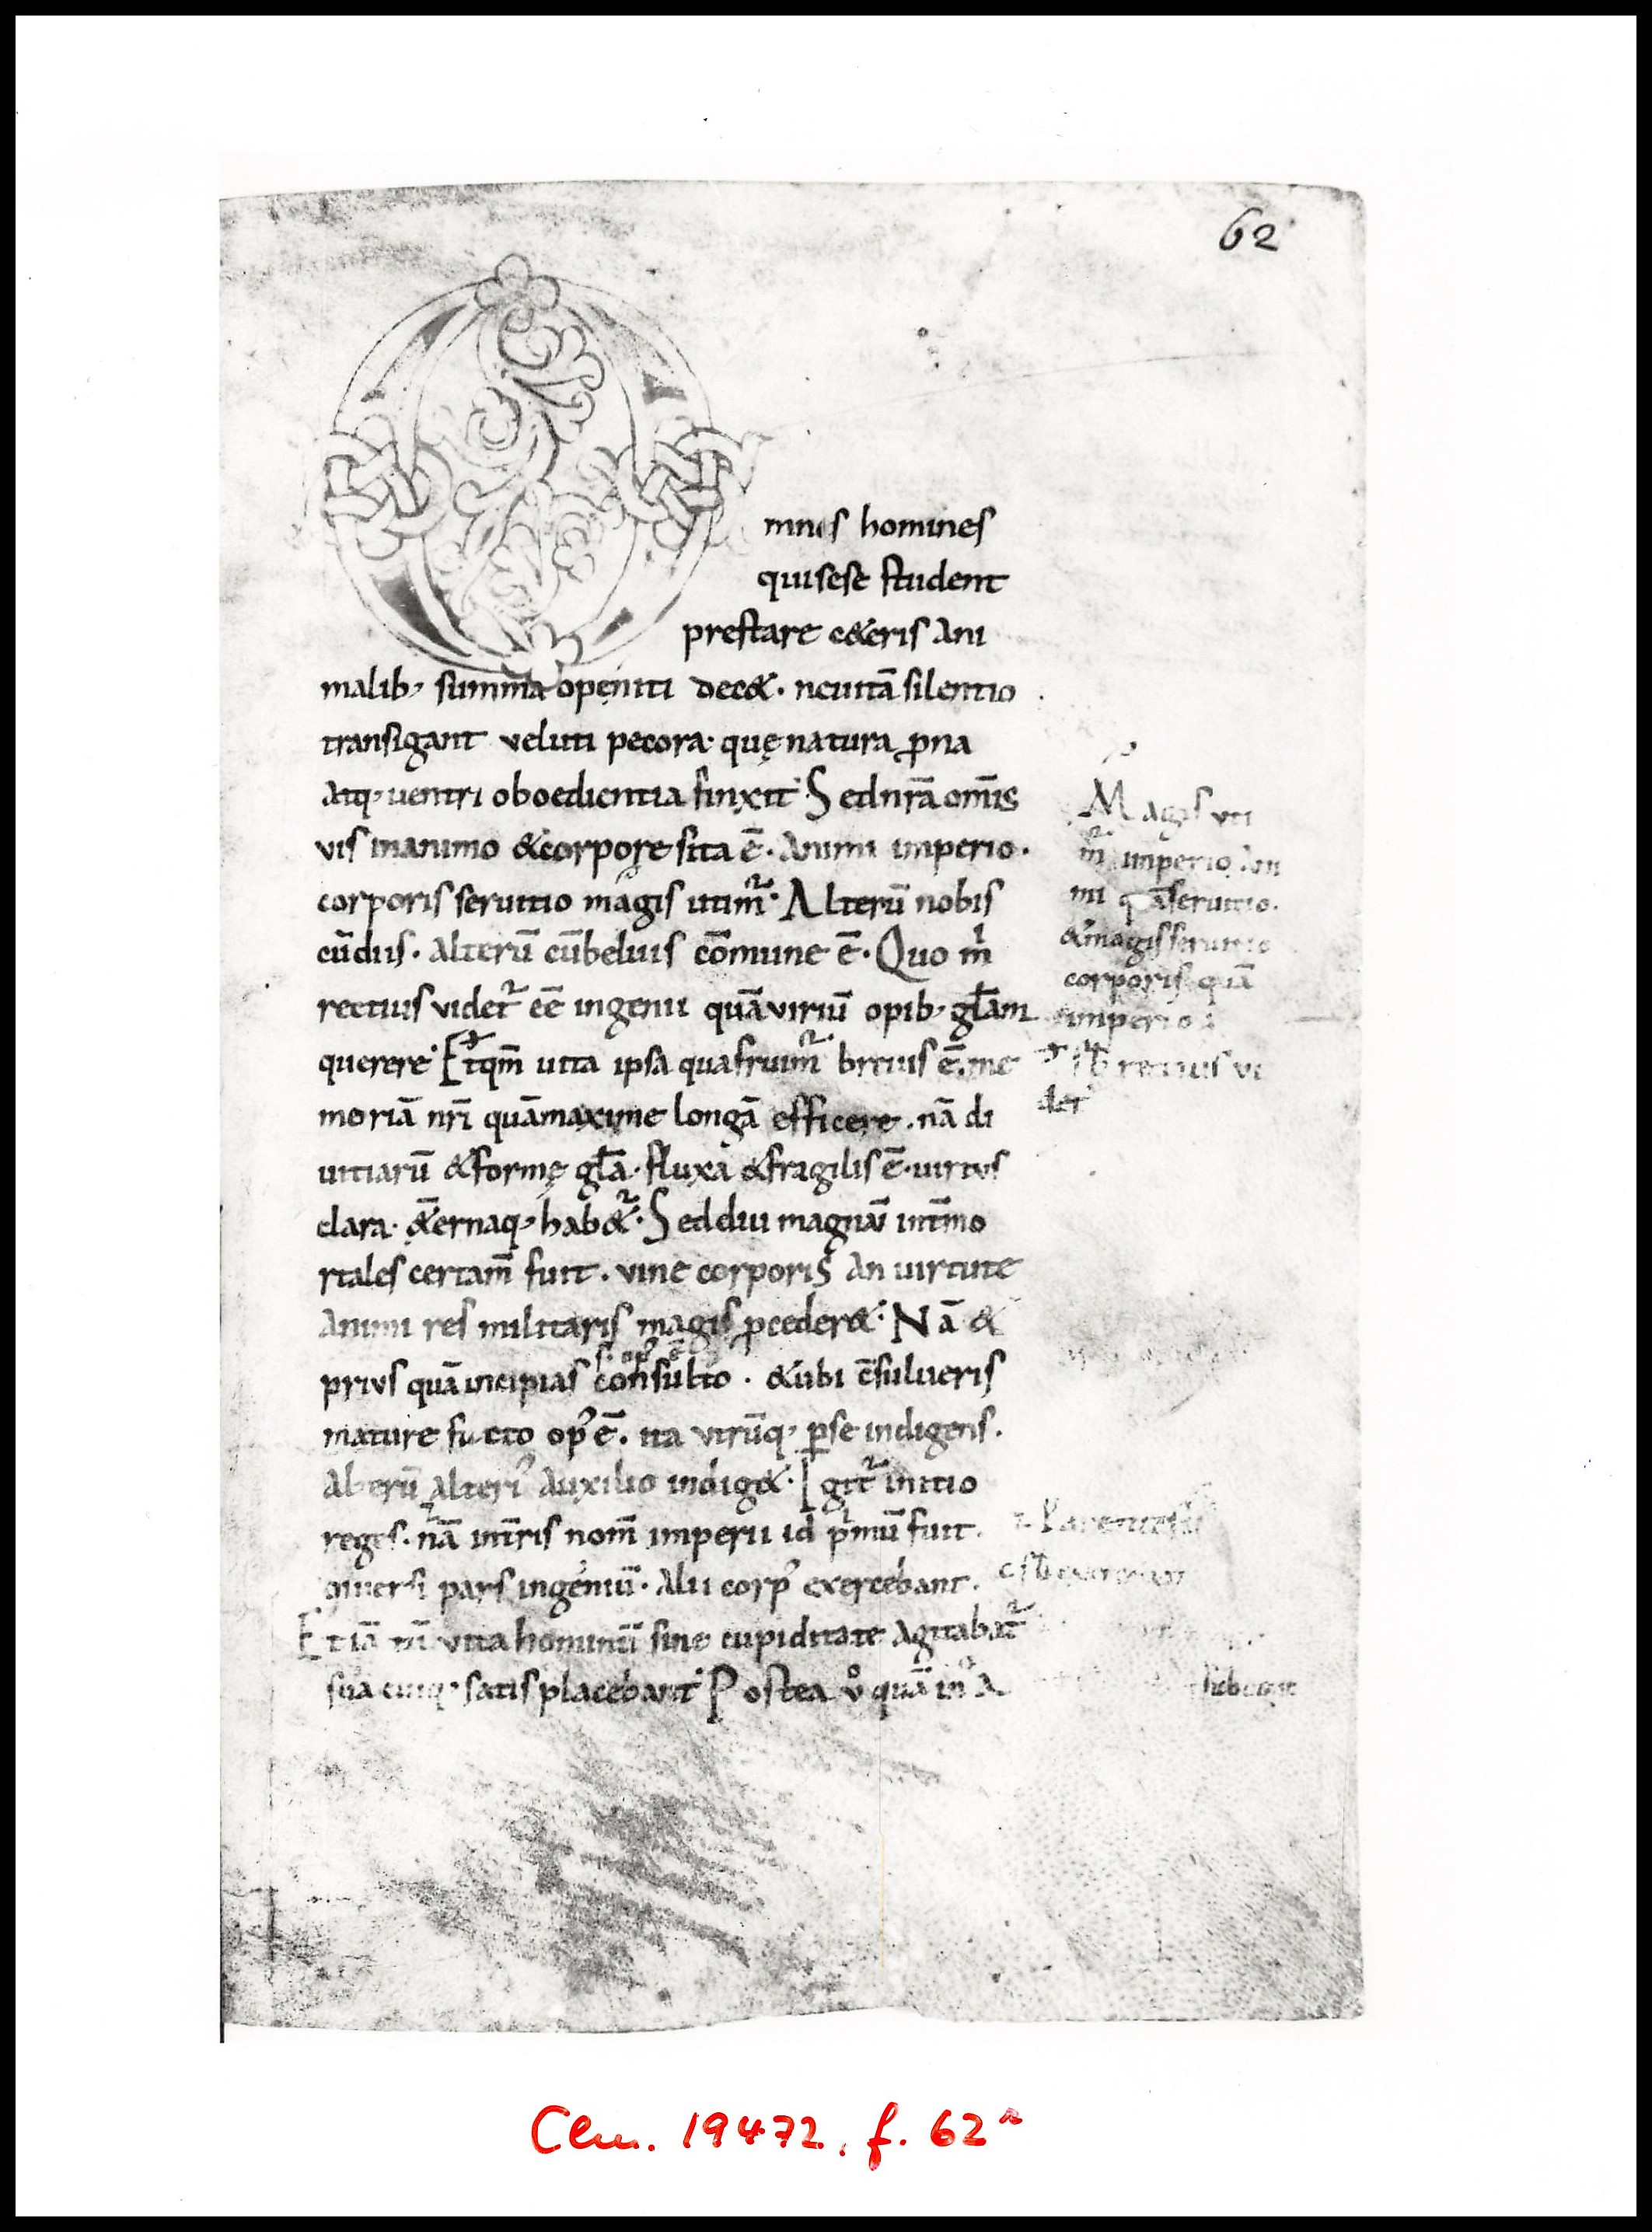 62
Omnes homines
qui sese student
prestare c&eris ani
malib; summa ope niti dec&. ne uitā silentio
transigant veluti pecora. quę natura ꝓna
atq; uentri oboedientia finxit. Sed nrā om̄is
vis in animo & corpore sita ē. Animi imperio.
corporis seruitio magis utimur̄. Alterū nobis
cū diis. alterū cū beluis cōmune ē. Quo m̄
rectius videt ēē ingenii quā viriū opib; glām
querere. Et qm̄ uita ipsa qua fruim̄ breuis ē. me
moriā nr̄i quā maxime longā efficere. nā di
uitiarū & formę glā. fluxa & fragilis ē. uirtus
clara. &ernaq; hab&. Sed diu magnū int̄ mo
rtales certam̄ fuit. vine corporis an uirtute
animi res militaris magis ꝓceder&. Nā &
prius quā incipias consulto. & ubi c̄sulueris
mature facto op' ē. ita utrūq; ꝑ se indigens.
Alterū alteri' auxilio indig&. Igit̄ initio
reges. nā int̄ris nom̄ imperii id pⁱmū fuit.
diuersi pars ingeniū. alii corp' exercebant.
Etiā tū vita hominū sine cupiditate agitabat̄
sua cuiq; satis placebant. Postea v̊ quā in A
Magis uti
m̄ imperio ani
mi quā seruitio.
& magis seruitio
corporis quā
imperio.
rectius vi
det
Clm. 19472, f. 62ʳ